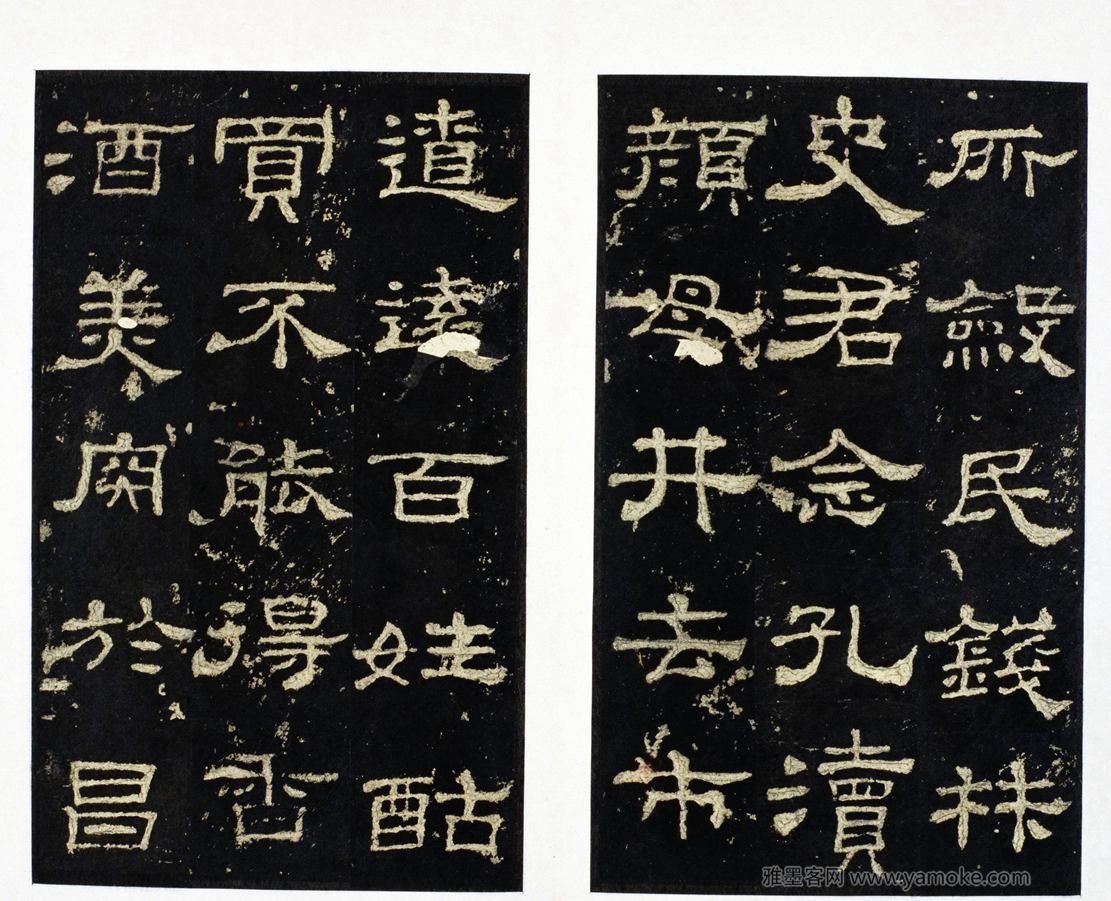 所斂民錢材
史君念孔瀆
顏母井去市
遼遠百姓酤
買不能得香
酒美肉於昌
雅墨客网 www.yamoke.com